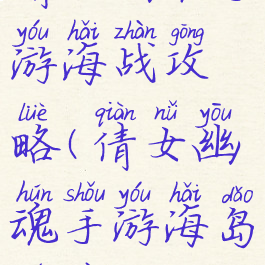 yóu hǎi zhàn gōng
游海战攻
lüè qiàn nǚ yōu
略(倩女幽
hún shǒu yóu hǎi dǎo
魂手游海岛